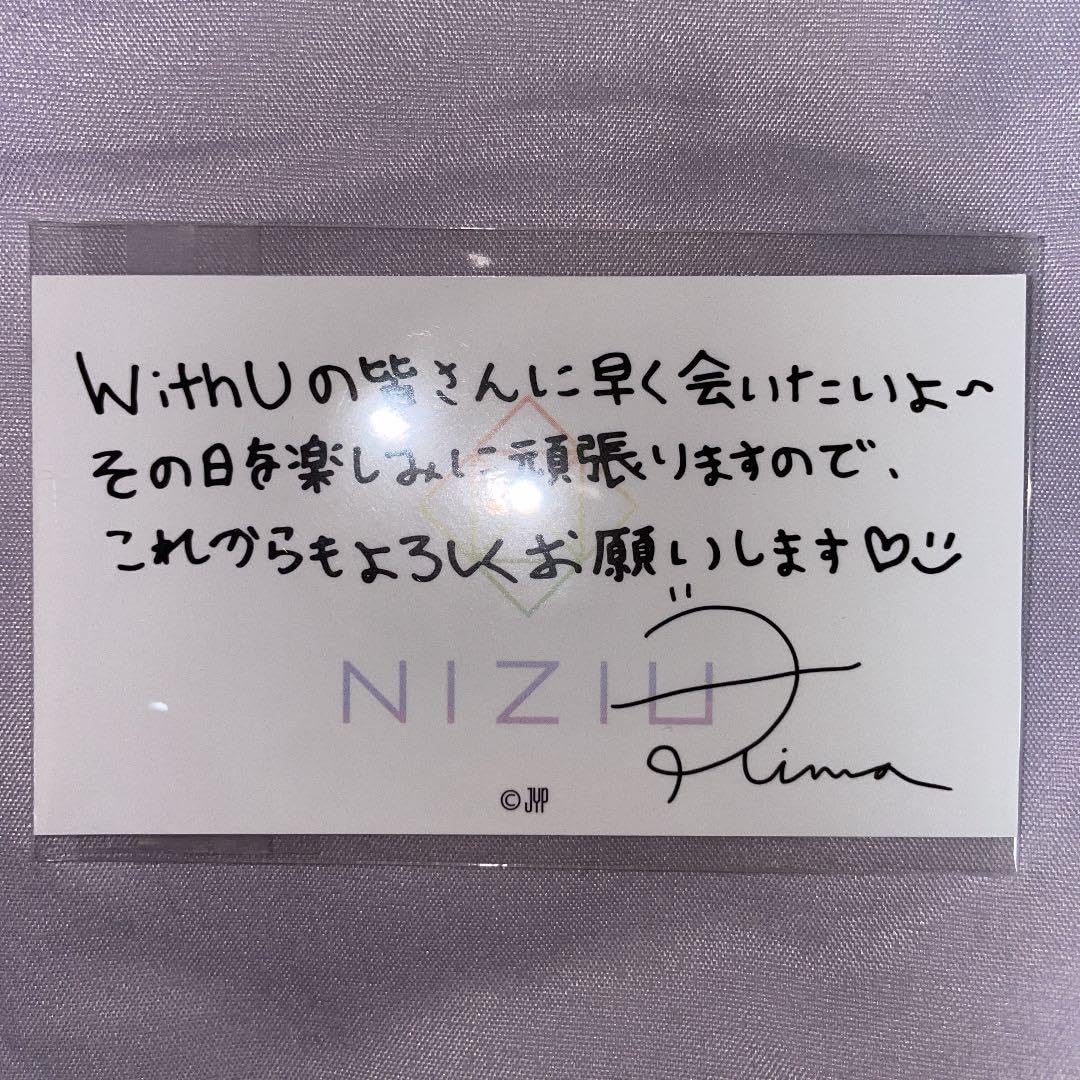 WithUの皆さんに早く会いたいよ〜
その日を楽しみに頑張りますので、
これからもよろしくお願いします♡
NIZIU
Rima
© JYP